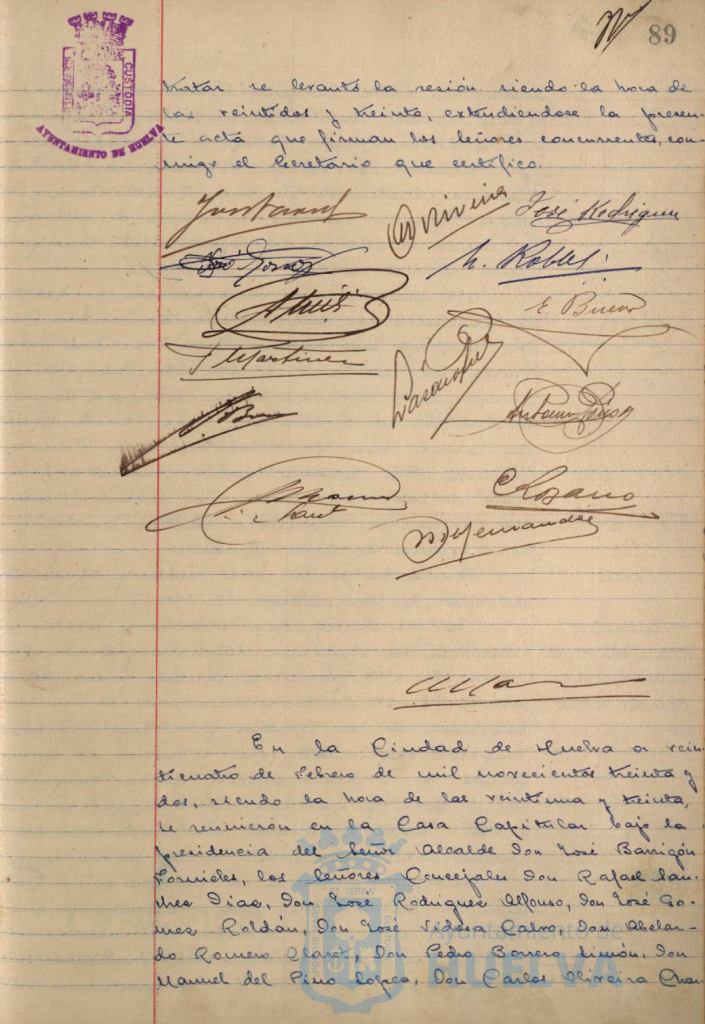 89
CUSTODIA
AYUNTAMIENTO DE HUELVA
tratar se levantó la sesión siendo la hora de
las veintidos y treinta, extendiendose la presen-
te acta que firman los Señores concurrentes, con-
migo el Secretario que certifico.
José Rodriguez
M. Robles
E. Bueno
J Martinez
C Rosano
Hernandez
En la Ciudad de Huelva a vein-
ticuatro de Febrero de mil novecientos treinta y
dos, siendo la hora de las veintiuna y treinta,
se reunieron en la Casa Capitular bajo la
presidencia del Señor Alcalde Don José Barrigón
Fornieles, los Señores Concejales Don Rafael San-
chez Diaz, Don José Rodriguez Alfonso, Don José Go-
mez Roldán, Don José Vidosa Calvo, Don Abelar-
do Romero Claret, Don Pedro Borrero Limón, Don
Manuel del Pino Lopez, Don Carlos Oliveira Chan-
Ayuntamiento de
HUELVA